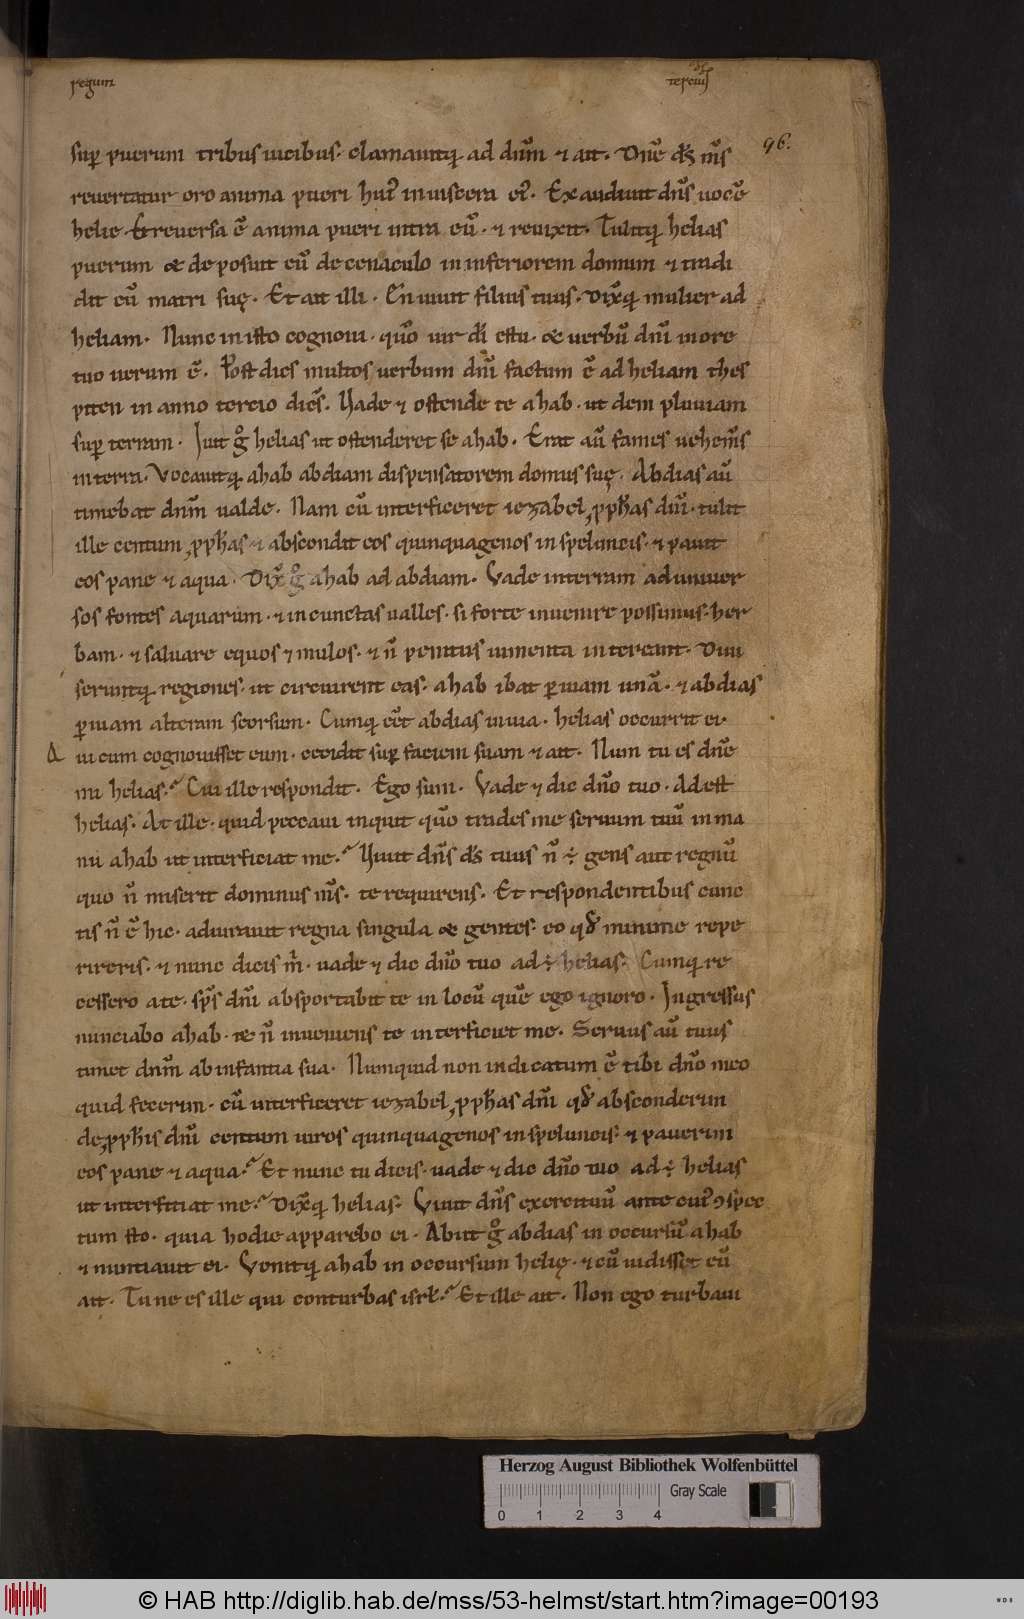 regum tercius
96.
sup̄ puerum tribus uicibus. clamauitq; ad dn̄m ⁊ ait. Dn̄e ds̄ m̄s
reuertatur oro anima pueri hui᷒ in uiscera ei᷒. Exaudiuit dn̄s uocē
helie. Et reuersa ē anima pueri intra eū. ⁊ reuixit. Tulitq; helias
puerum & deposuit eū de cenaculo in inferiorem domum ⁊ tradi
dit eū matri suę. Et ait illi. En uiuit filius tuus. Dix̄q; mulier ad
heliam. Nunc in isto cognoui. qūo uir dī es tu. & uerbū dn̄i in ore
tuo uerum ē. Post dies multos uerbum dn̄i factum ē ad heliam thes
piten in anno tercio dicēs. Uade ⁊ ostende te ahab. ut dem pluuiam
sup̄ terram. Iuit gͦ helias ut ostenderet se ahab. Erat aū fames uehem̄s
in terra. Vocauitq; ahab abdiam dispensatorem domus suę. Abdias aū
timebat dn̄m ualde. Nam cū interficeret iezabel ꝓph̄as dn̄i. tulit
ille centum ꝓph̄as ⁊ abscondit eos quinquagenos in speluncis. ⁊ pauit
eos pane ⁊ aqua. Dix̄ gͦ ahab ad abdiam. Vade in terram ad uniuer
sos fontes aquarum. ⁊ in cunctas ualles. si forte inuenire possimus her
bam. ⁊ saluare equos ⁊ mulos. ⁊ n̄ penitus iumenta intereant. Diui
seruntq; regiones. ut circuirent eas. ahab ibat ꝑ uiam unā. ⁊ abdias
ꝑ uiam alteram seorsum. Cumq; eēt abdias in uia. helias occurrit ei.
Qui cum cognouisset eum. cecidit sup̄ faciem suam ⁊ ait. Num tu es dn̄e
mi helias? Cui ille respondit. Ego sum. Vade ⁊ dic dn̄o tuo. Adest
helias. At ille. quid peccaui inquit qūo trades me seruum tuū in ma
nu ahab ut interficiat me? Uiuit dn̄s ds̄ tuus n̄ ÷ gens aut regnū
quo n̄ miserit dominus m̄s. te requirens. Et respondentibus cunc
tis n̄ ē hic. adiurauit regna singula & gentes. eo qđ minime repe
rireris. ⁊ nunc dicis m̄. uade ⁊ dic dn̄o tuo ad÷ helias. Cumq; re
cessero a te. sp̄s dn̄i absportabit te in locū quē ego ignoro. Ingressus
nunciabo ahab. & n̄ inueniens te interficiet me. Seruus aū tuus
timet dn̄m ab infantia sua. Numquid non indicatum ē tibi dn̄o meo
quid fecerim. cū interficeret iezabel ꝓph̄as dn̄i qđ absconderim
de ꝓph̄is dn̄i centum uiros quinquagenos in speluncis. ⁊ pauerim
eos pane ⁊ aqua? Et nunc tu dicis. uade ⁊ dic dn̄o tuo ad÷ helias
ut interficiat me? Dix̄q; helias. Viuit dn̄s exercituū ante cui᷒ ꝯspec
tum sto. quia hodie apparebo ei. Abiit gͦ abdias in occursū ahab
⁊ nuntiauit ei. Venitq; ahab in occursum helię. ⁊ cū uidisset eū
ait. Tu ne es ille qui conturbas isrł? Et ille ait. Non ego turbaui
Herzog August Bibliothek Wolfenbüttel
Gray Scale
0 1 2 3 4
© HAB http://diglib.hab.de/mss/53-helmst/start.htm?image=00193